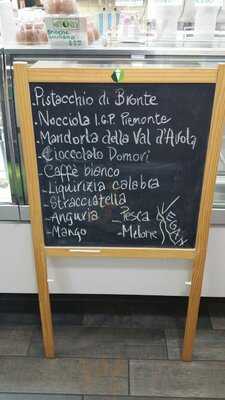 -Pistacchio di Bronte
-Nocciola I.G.P. Piemonte
-Mandorla della Val d'Avola
-Cioccolato Domori
-Caffè bianco
-Liquirizia calabra
-Stracciatella
-Anguria -Pesca
-Mango -Melone
VEGAN